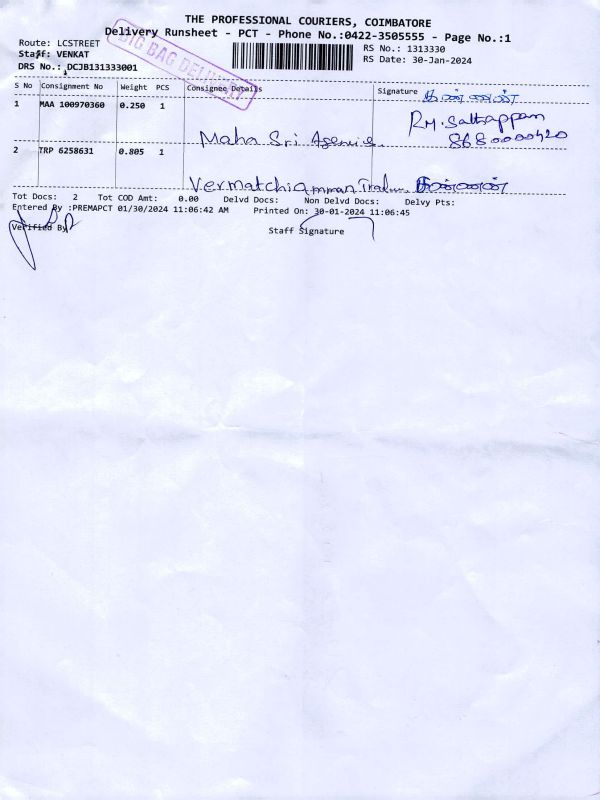 THE PROFESSIONAL COURIERS, COIMBATORE
Delivery Runsheet - PCT - Phone No.:0422-3505555 - Page No.:1
Route: LCSTREET
RS No.: 1313330
Staff: VENKAT
RS Date: 30-Jan-2024
DRS No.: DCJB131333001
BIG BAG DELIVERY
S No Consignment No Weight PCS Consignee Details Signature
1 MAA 100970360 0.250 1
RM. Sathappan
Maha Sri Agencie 8680000420
2 TRP 6258631 0.805 1
Tot Docs: 2 Tot COD Amt: 0.00 Delvd Docs: Non Delvd Docs: Delvy Pts:
Entered By :PREMAPCT 01/30/2024 11:06:42 AM Printed On: 30-01-2024 11:06:45
Verified By
Staff Signature